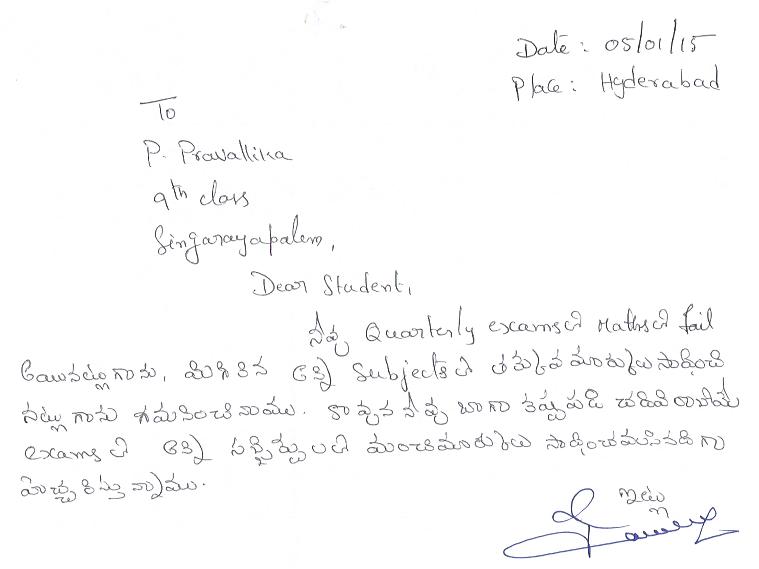 Date : 05/01/15
Place : Hyderabad
To
P. Pravallika
9th class
Singarayapalem,
Dear Student,
నీవు Quarterly examsలో Mathsలో fail
అయినట్లుగాను, మిగిలిన అన్ని Subjectsలో తక్కువ మార్కులు సాధించి
నట్లుగాను గమనించినాము. కావున నీవు బాగా కష్టపడి చదివి రాబోయే
examsలో అన్ని సబ్జెక్టులలో మంచి మార్కులు సాధించవలసినదిగా
హెచ్చరిస్తున్నాము.
ఇట్లు